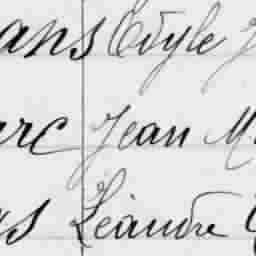 ans Edyle J
arc Jean M
as Léandre